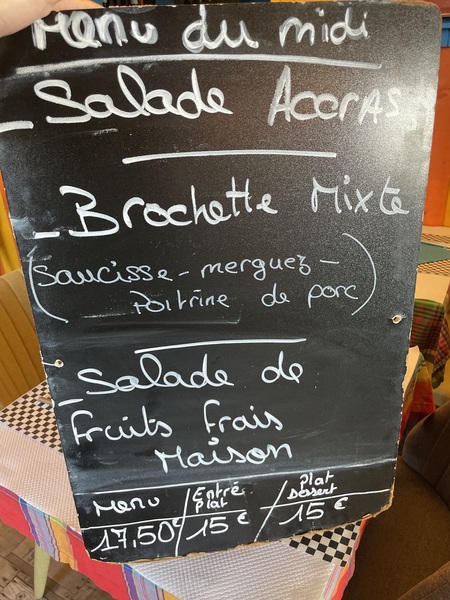 Menu du midi
- Salade Accras
- Brochette Mixte
(Saucisse - merguez -
Poitrine de porc)
- Salade de
Fruits frais
Maison
Menu / Entré Plat / Plat Dessert
17,50€ / 15€ / 15€